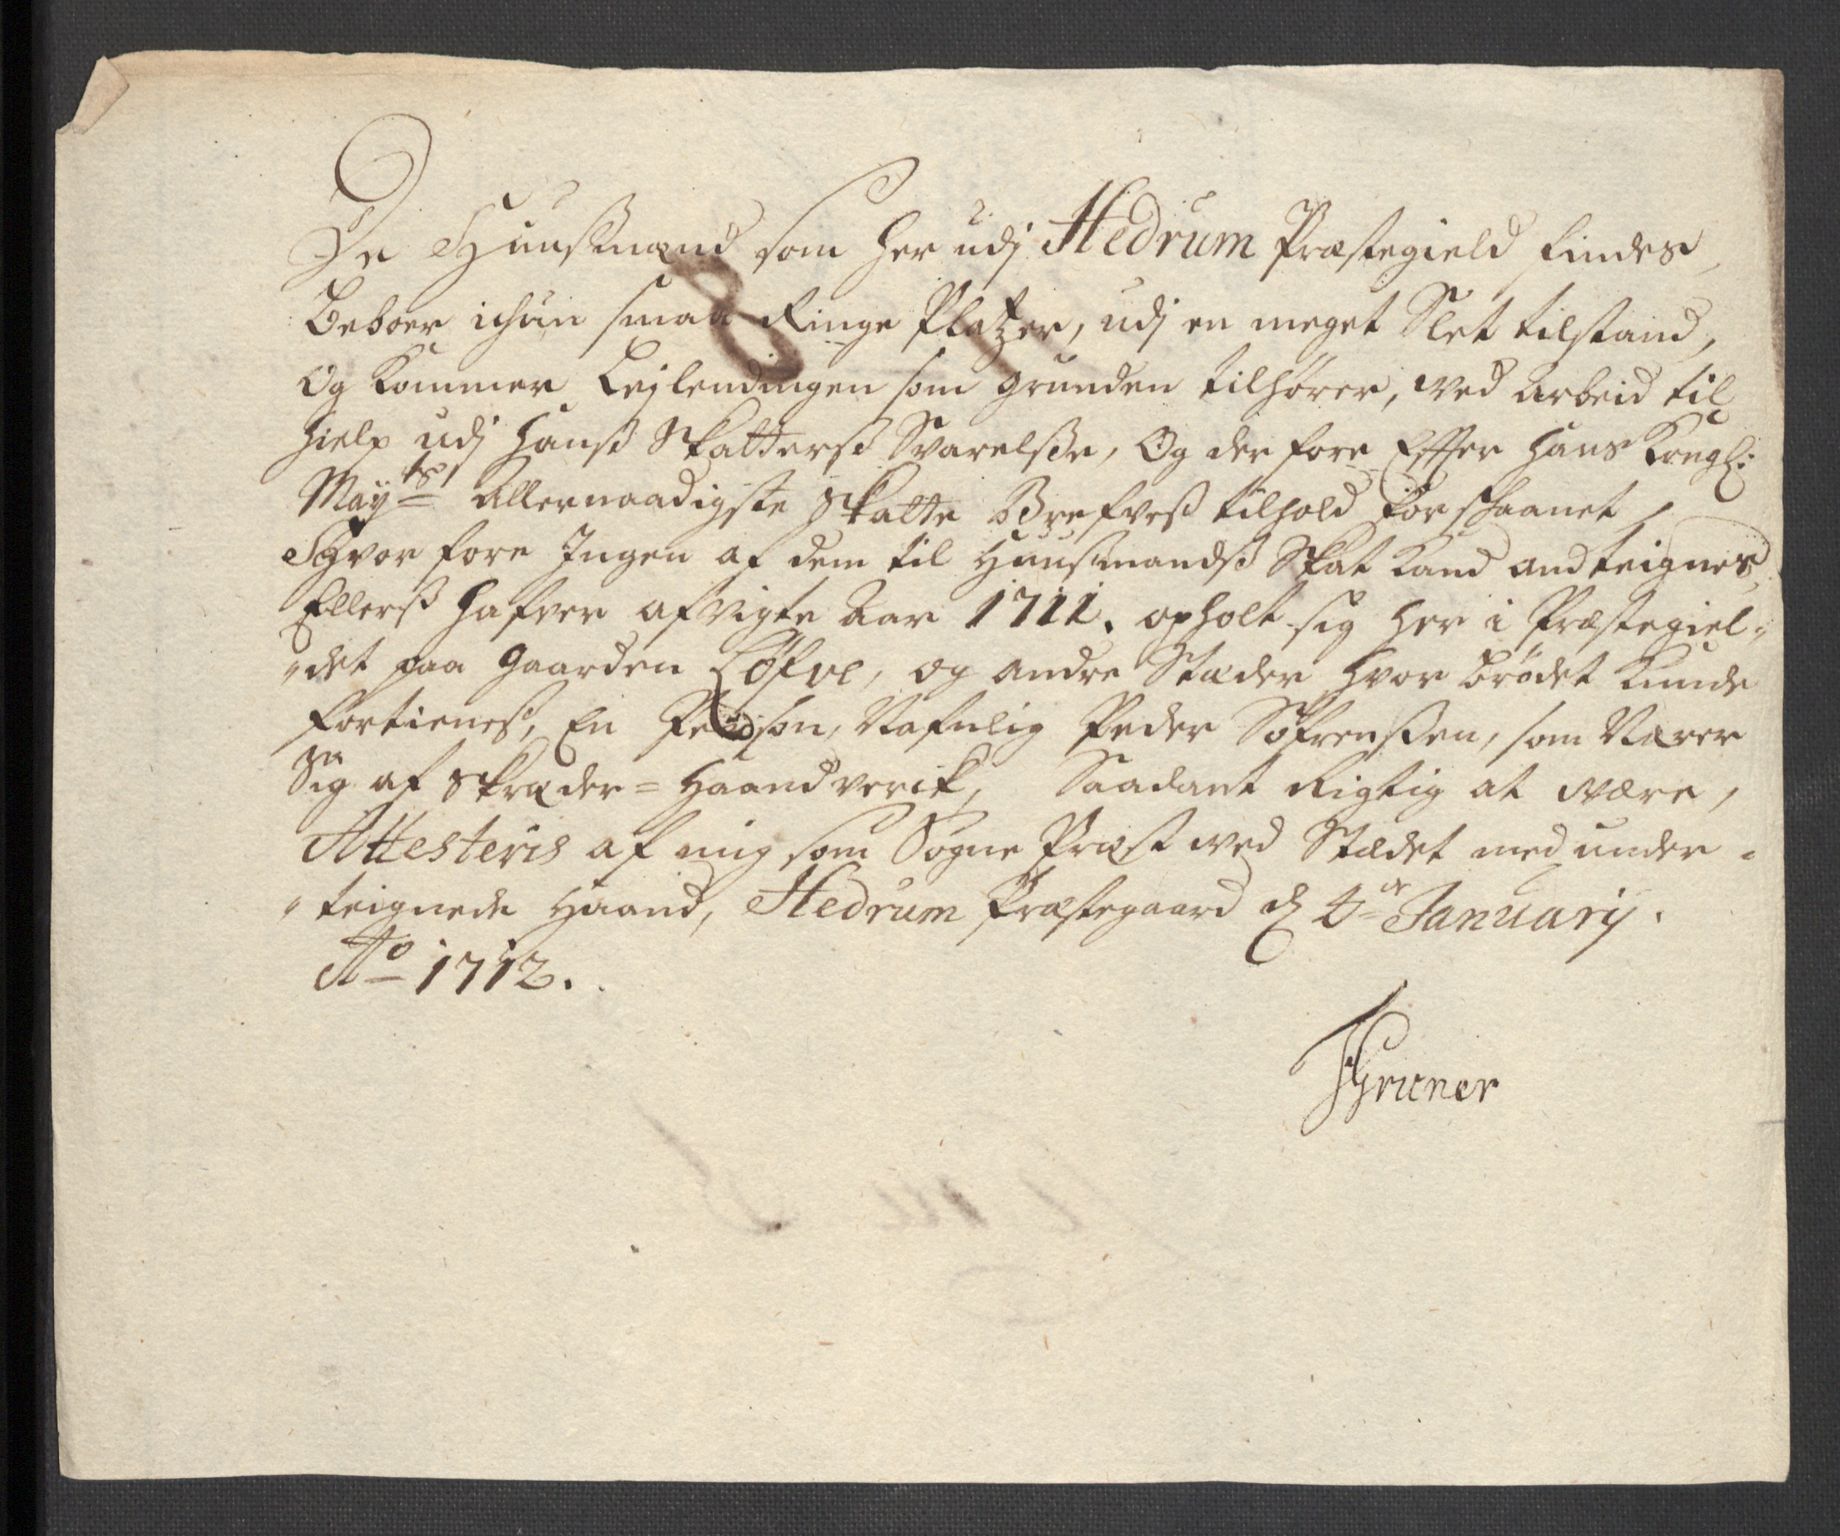 De Huusmænd som her udj Hedrum Præstegield findes,
Beboer ichun smaa Ringe Platzer, udj en meget Slet tilstand,
Og kommer Lejlendingen som grunden tilhører, ved Arbeid til
hielp udj hanß Skatterß Svarelße, Og der fore Effter Hans Kongl:
Mayts Allernaadigste Skatte Brefveß tilhold forskaanet,
Hvor fore Ingen af dem til Huusmandß Skat kand andteignes,
Ellerß hafver afvigte Aar 1711. opholt sig her i Præstegiel„
„det paa gaarden Löfve, og andre Stæder hvor brødet kunde
fortieneß, En Person, Nafnlig Peder Søfrenßen, som Nærer
Sig af Skræder = Haandverck, Saadant Rigtig at være,
Attesteris af mig som Sogne Præst ved Stædet med under„
„teignede Haand, Hedrum Præstegaard d 4de Januarij.
Ao 1712.
8
Gruner